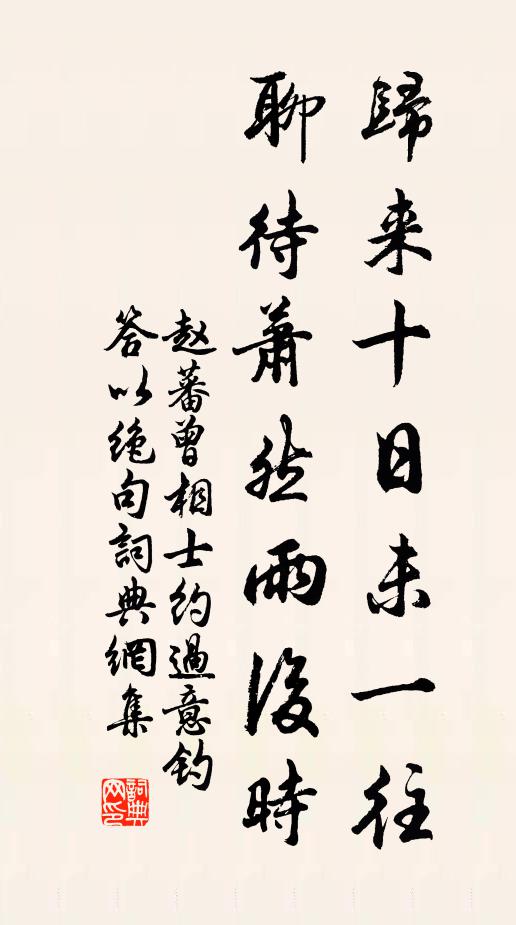 歸来十日未一往
聊待蕭然雨後時
赵蕃曾相士約過意釣
答以絶句詞典網集
詞典網印